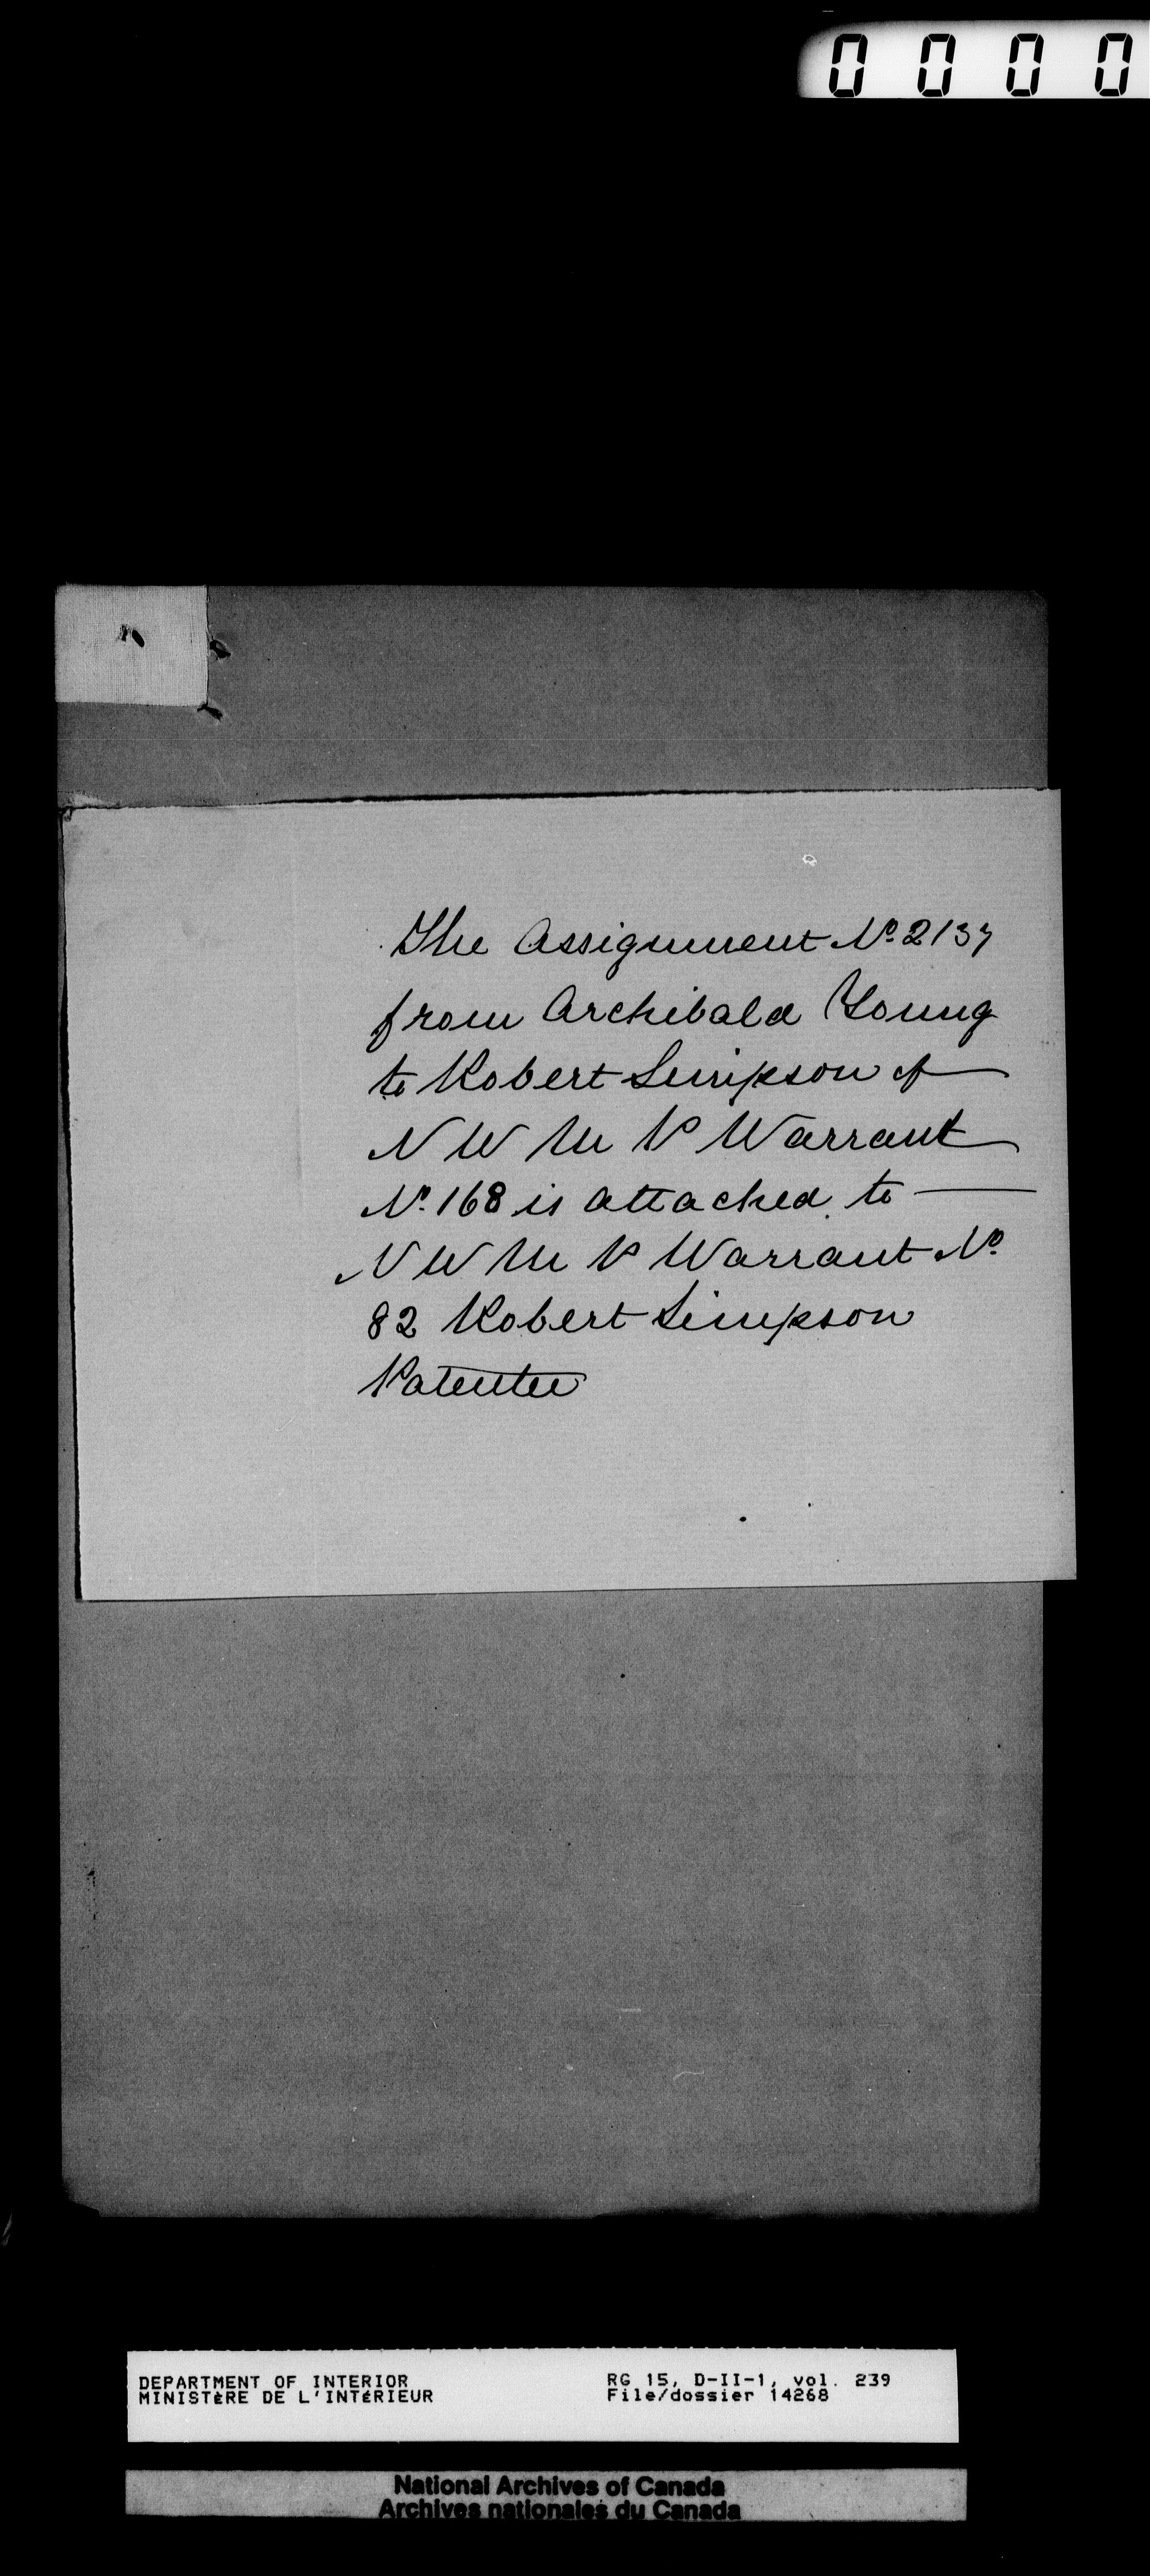 0000
The Assignment No. 2137
from Archibald Young
to Robert Simpson of
N W M P Warrant
No. 168 is attached to
N W M P Warrant No
82 Robert Simpson
Patentee
DEPARTMENT OF INTERIOR
MINISTÈRE DE L'INTÉRIEUR
RG 15, D-II-1, vol. 239
File/dossier 14268
National Archives of Canada
Archives nationales du Canada